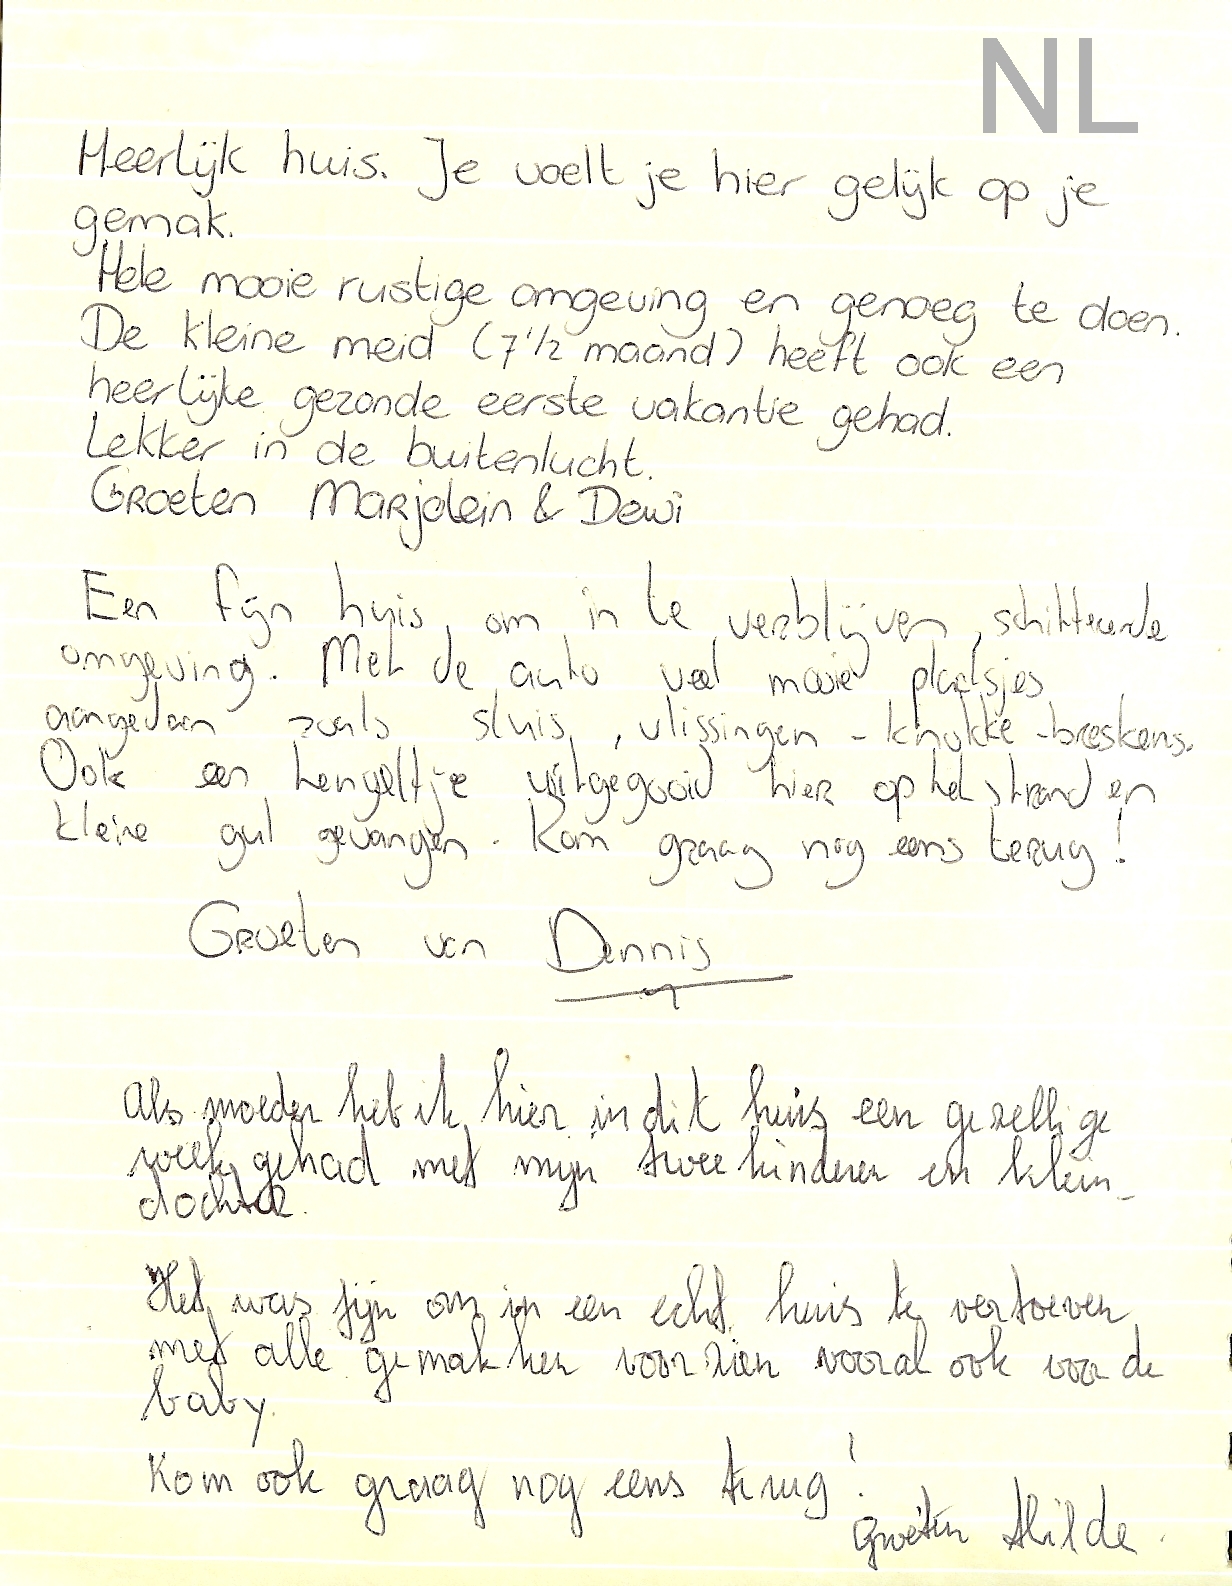 NL
Heerlijk huis. Je voelt je hier gelijk op je
gemak.
Hele mooie rustige omgeving en genoeg te doen.
De kleine meid (7 1/2 maand) heeft ook een
heerlijke gezonde eerste vakantie gehad.
Lekker in de buitenlucht.
Groeten Marjolein & Dewi
Een fijn huis om in te verblijven, schitterende
omgeving. Met de auto veel mooie plaatsjes
aangedaan zoals sluis, vlissingen - knokke - breskens.
Ook een hengeltje uitgegooid hier op het strand en
kleine gul gevangen. Kom graag nog eens terug!
Groeten van Dennis
Als moeder heb ik hier in dit huis een gezellige
week gehad met mijn twee kinderen en klein-
dochter.
Het was fijn om in een echt huis te vertoeven
met alle gemakken voorzien vooral ook voor de
baby.
Kom ook graag nog eens terug!
Groeten Hilde.